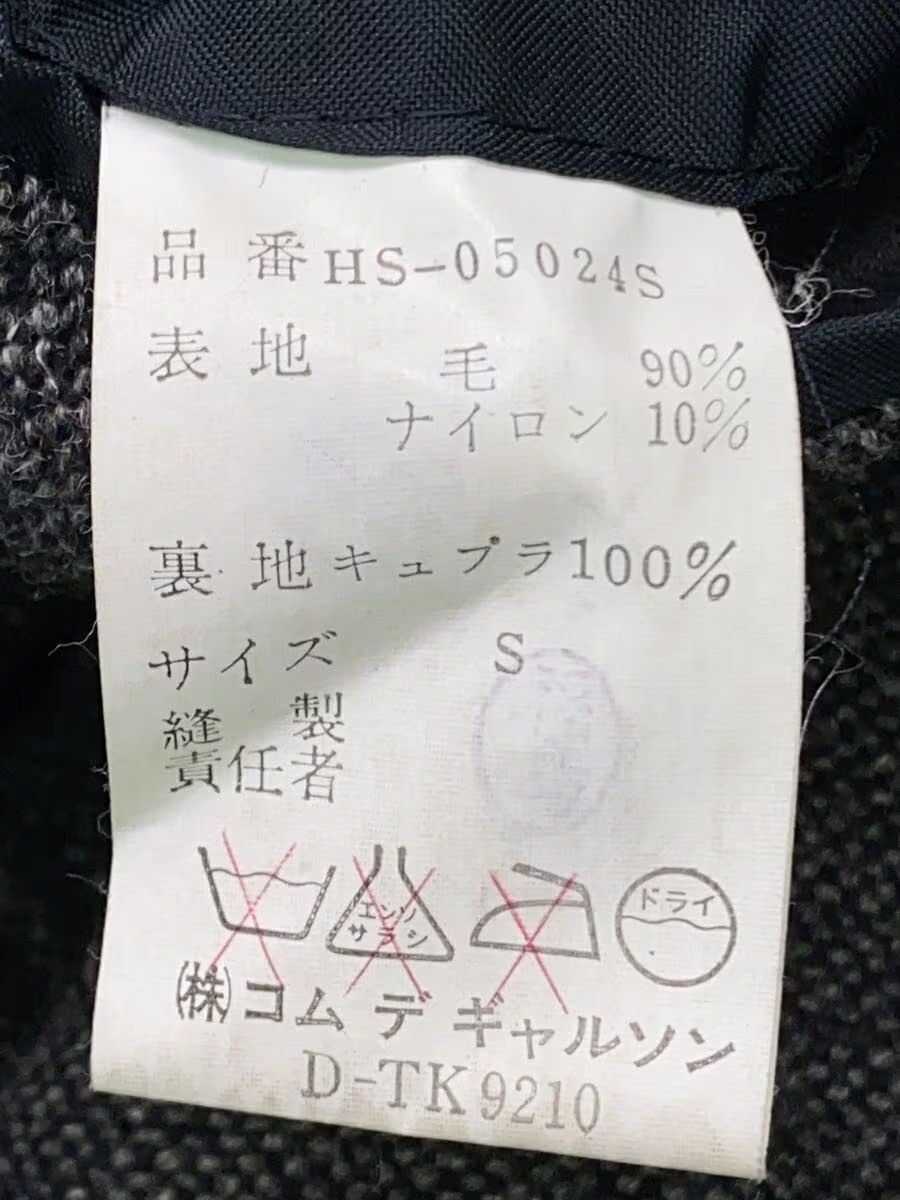 品番 HS-05024S
表地 毛 90%
ナイロン 10%
裏地 キュプラ 100%
サイズ S
縫製
責任者
エンソ
サラシ
ドライ
㈱コム デ ギャルソン
D-TK9210